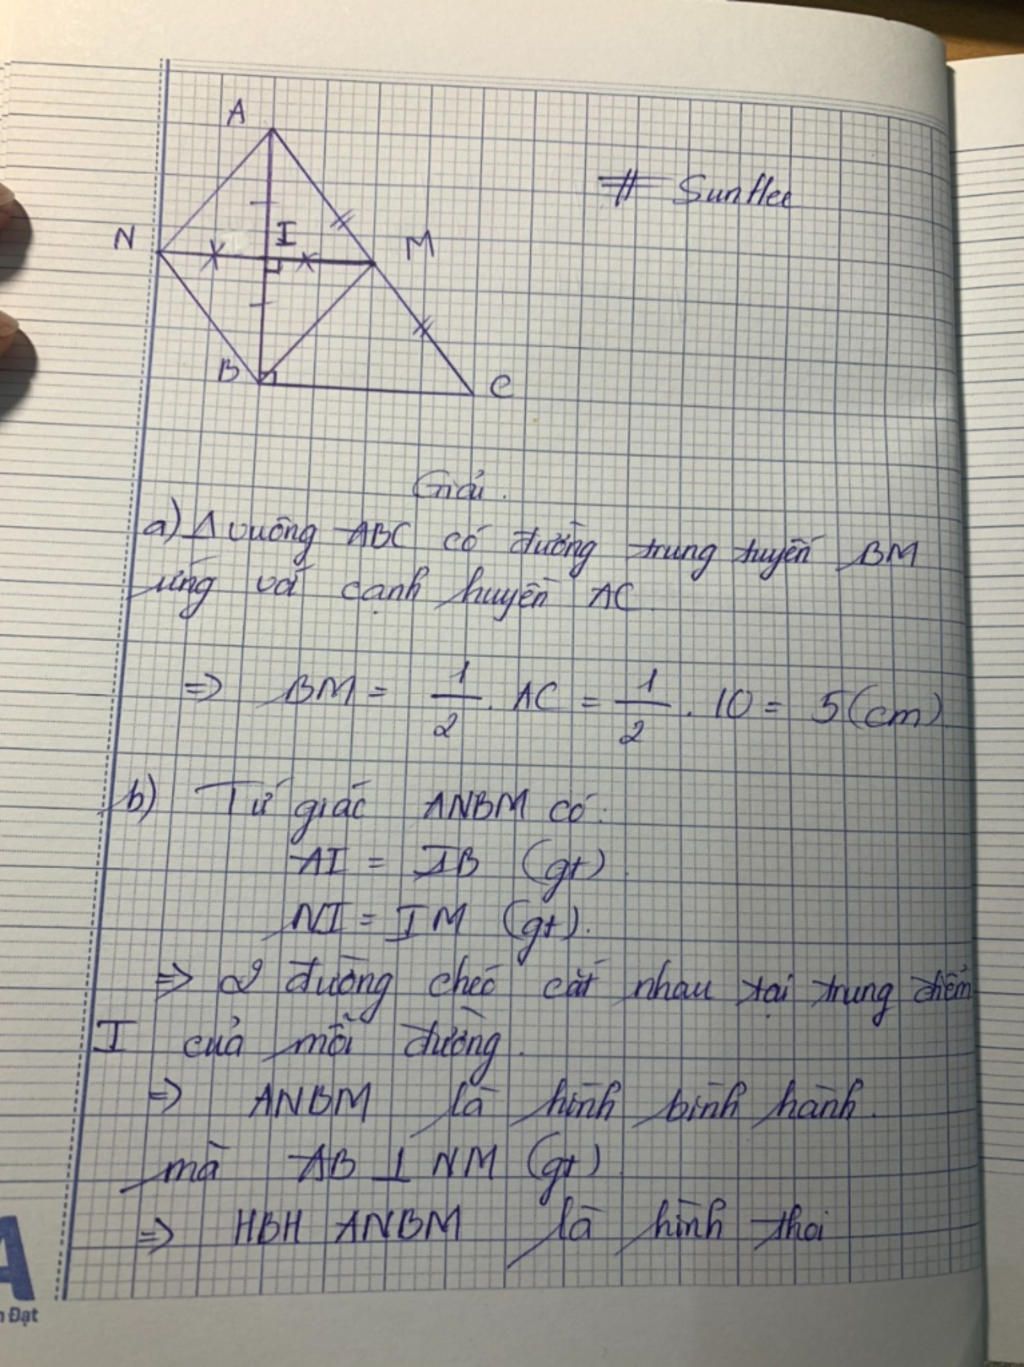 A
# SunHee
N
I
M
B
C
Giải.
a) Δ vuông ABC có đường trung tuyến BM
ứng với cạnh huyền AC
=> BM = 1/2 . AC = 1/2 . 10 = 5 (cm)
b) Tứ giác ANBM có:
AI = IB (gt)
NI = IM (gt).
=> 2 đường chéo cắt nhau tại trung điểm
I của mỗi đường.
=> ANBM là hình bình hành.
mà AB ⊥ NM (gt)
=> HBH ANBM là hình thoi
A
Đạt